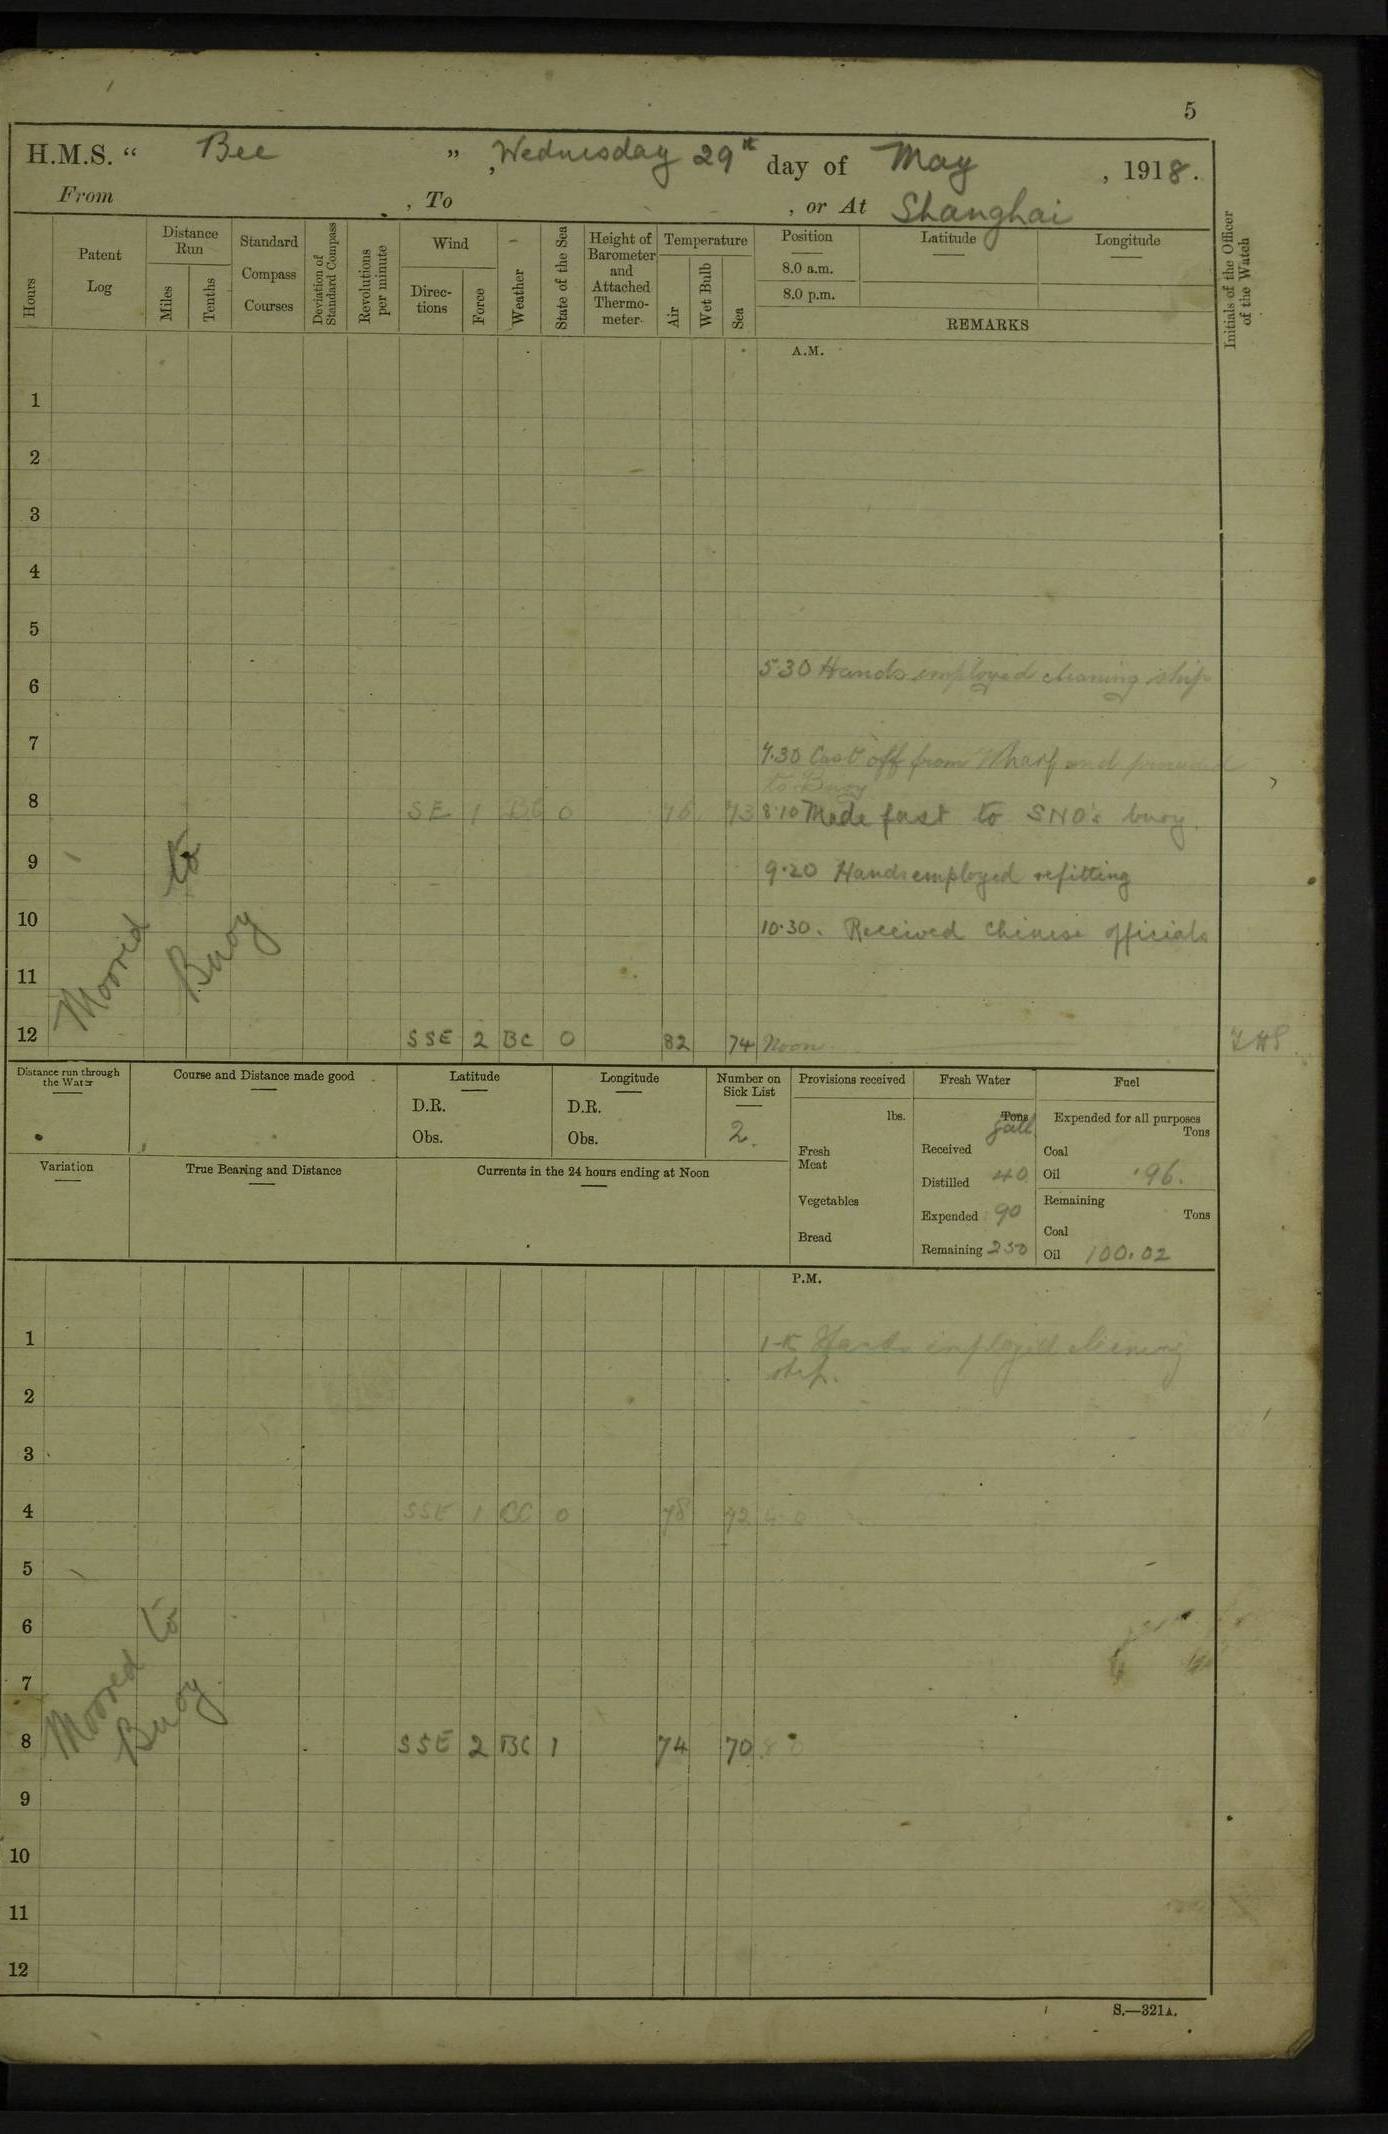 5
H.M.S. “ Bee ” , Wednesday 29th day of May , 1918.
From , To , or At Shanghai
Hours
Patent Log
Distance Run
Miles
Tenths
Standard Compass Courses
Deviation of Standard Compass
Revolutions per minute
Wind
Direc-tions
Force
Weather
State of the Sea
Height of Barometer and Attached Thermo-meter
Temperature
Air
Wet Bulb
Sea
Position
8.0 a.m.
8.0 p.m.
Latitude
Longitude
REMARKS
Initials of the Officer of the Watch
A.M.
1
2
3
4
5
5.30 Hands employed cleaning ship
6
7
7.30 Cast off from Wharf and proceeded
to Buoy
8 SE 1 BC 0 76 73 8.10 Made fast to SNO's buoy.
9 9.20 Hands employed refitting
10 10.30. Received Chinese officials
11
Moored to
Buoy
12 SSE 2 BC 0 82 74 Noon
Distance run through the Water
Course and Distance made good
Latitude
D.R.
Obs.
Longitude
D.R.
Obs.
Number on Sick List
2.
Variation
True Bearing and Distance
Currents in the 24 hours ending at Noon
Provisions received
lbs.
Fresh Meat
Vegetables
Bread
Fresh Water
Tons
Gall
Received
Distilled 40
Expended 90
Remaining 250
Fuel
Expended for all purposes
Tons
Coal
Oil .96.
Remaining
Tons
Coal
Oil 100.02
P.M.
1 Hands employed cleaning
ship.
2
3
4 SSE 1 78 72 4.0
5
6
7
Moored to
Buoy
8 SSE 2 BC 1 74 70 8.0
9
10
11
12
S.—321A.